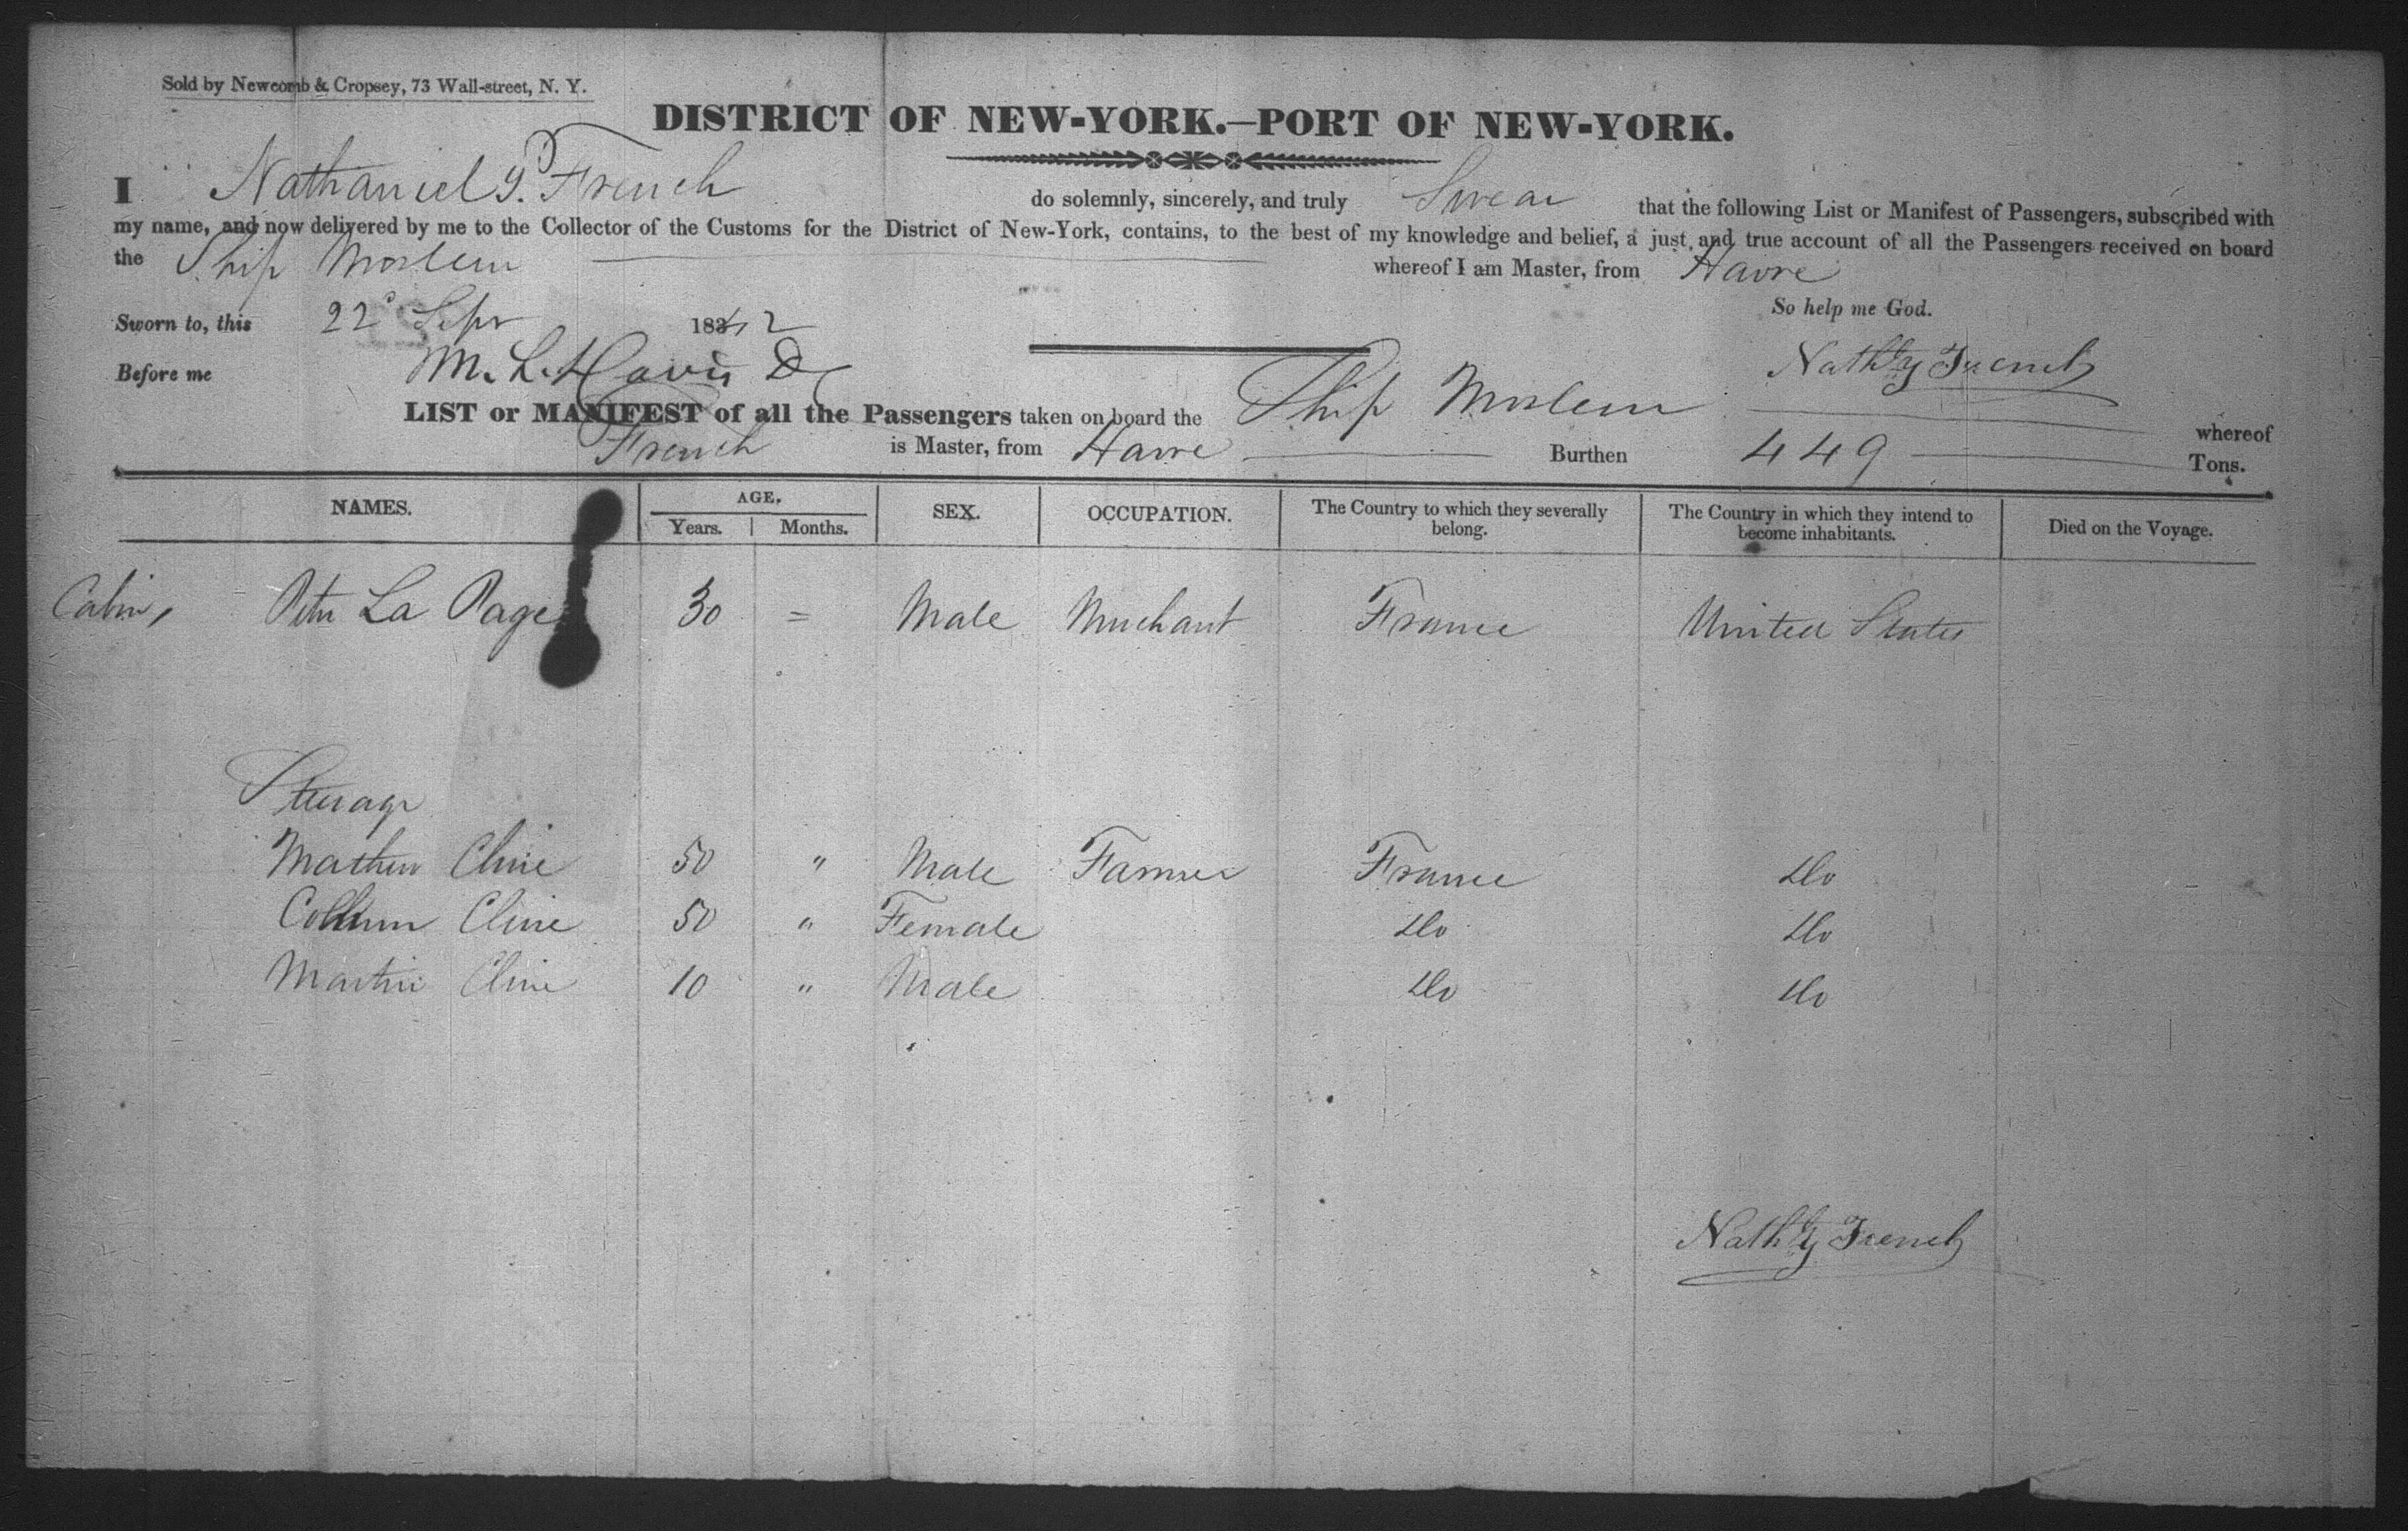 Sold by Newcomb & Cropsey, 73 Wall-street, N. Y.
DISTRICT OF NEW-YORK.—PORT OF NEW-YORK.
I Nathaniel G. French do solemnly, sincerely, and truly Swear that the following List or Manifest of Passengers, subscribed with
my name, and now delivered by me to the Collector of the Customs for the District of New-York, contains, to the best of my knowledge and belief, a just and true account of all the Passengers received on board
the Ship Moslem whereof I am Master, from Havre
So help me God.
Sworn to, this 22d Sepr 1842
Before me M. L. Davis
Nathl G French
LIST or MANIFEST of all the Passengers taken on board the Ship Moslem whereof
French is Master, from Havre Burthen 449 Tons.
NAMES. AGE. SEX. OCCUPATION. The Country to which they severally belong. The Country in which they intend to become inhabitants. Died on the Voyage.
Years. Months.
Cabin, Peter La Page 30 = Male Merchant France United States
Steerage
Mathew Cline 50 " Male Farmer France Do
Cline 50 " Female Do Do
Martin Cline 10 " Male Do Do
Nathl G French